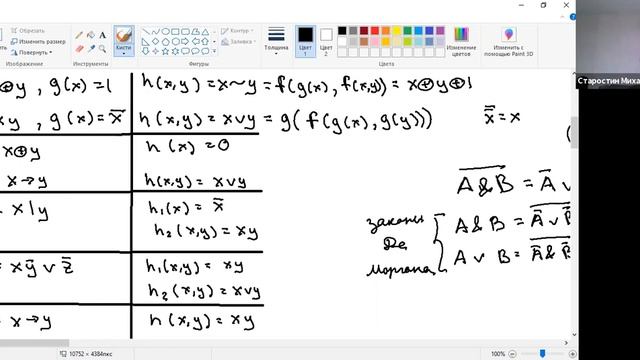 Обрезать
Изменить размер
Повернуть
Изображение
Инструменты
Кисти
Фигуры
Контур
Заливка
Толщина
Цвет 1
Цвет 2
Цвета
Изменение цветов
Изменить с помощью Paint 3D
Старостин Миха
⊕y, g(x)=1
h(x,y) = x~y = f(g(x), f(x,y)) = x⊕y⊕1
xy, g(x)=x̄
h(x,y) = x∨y = g(f(g(x), g(y)))
x̿=x
x⊕y
h(x)=0
x→y
h(x,y)= x∨y
x|y
h₁(x) = x̄
h₂(x,y)= xy
= xȳ ∨ z̄
h₁(x,y)= xy
h₂(x,y)= x∨y
x→y
h(x,y)= xy
A̅&̅B̅ = Ā ∨
законы
Де
Моргана
A & B =
A ∨ B =
10752 × 4384пкс
100%